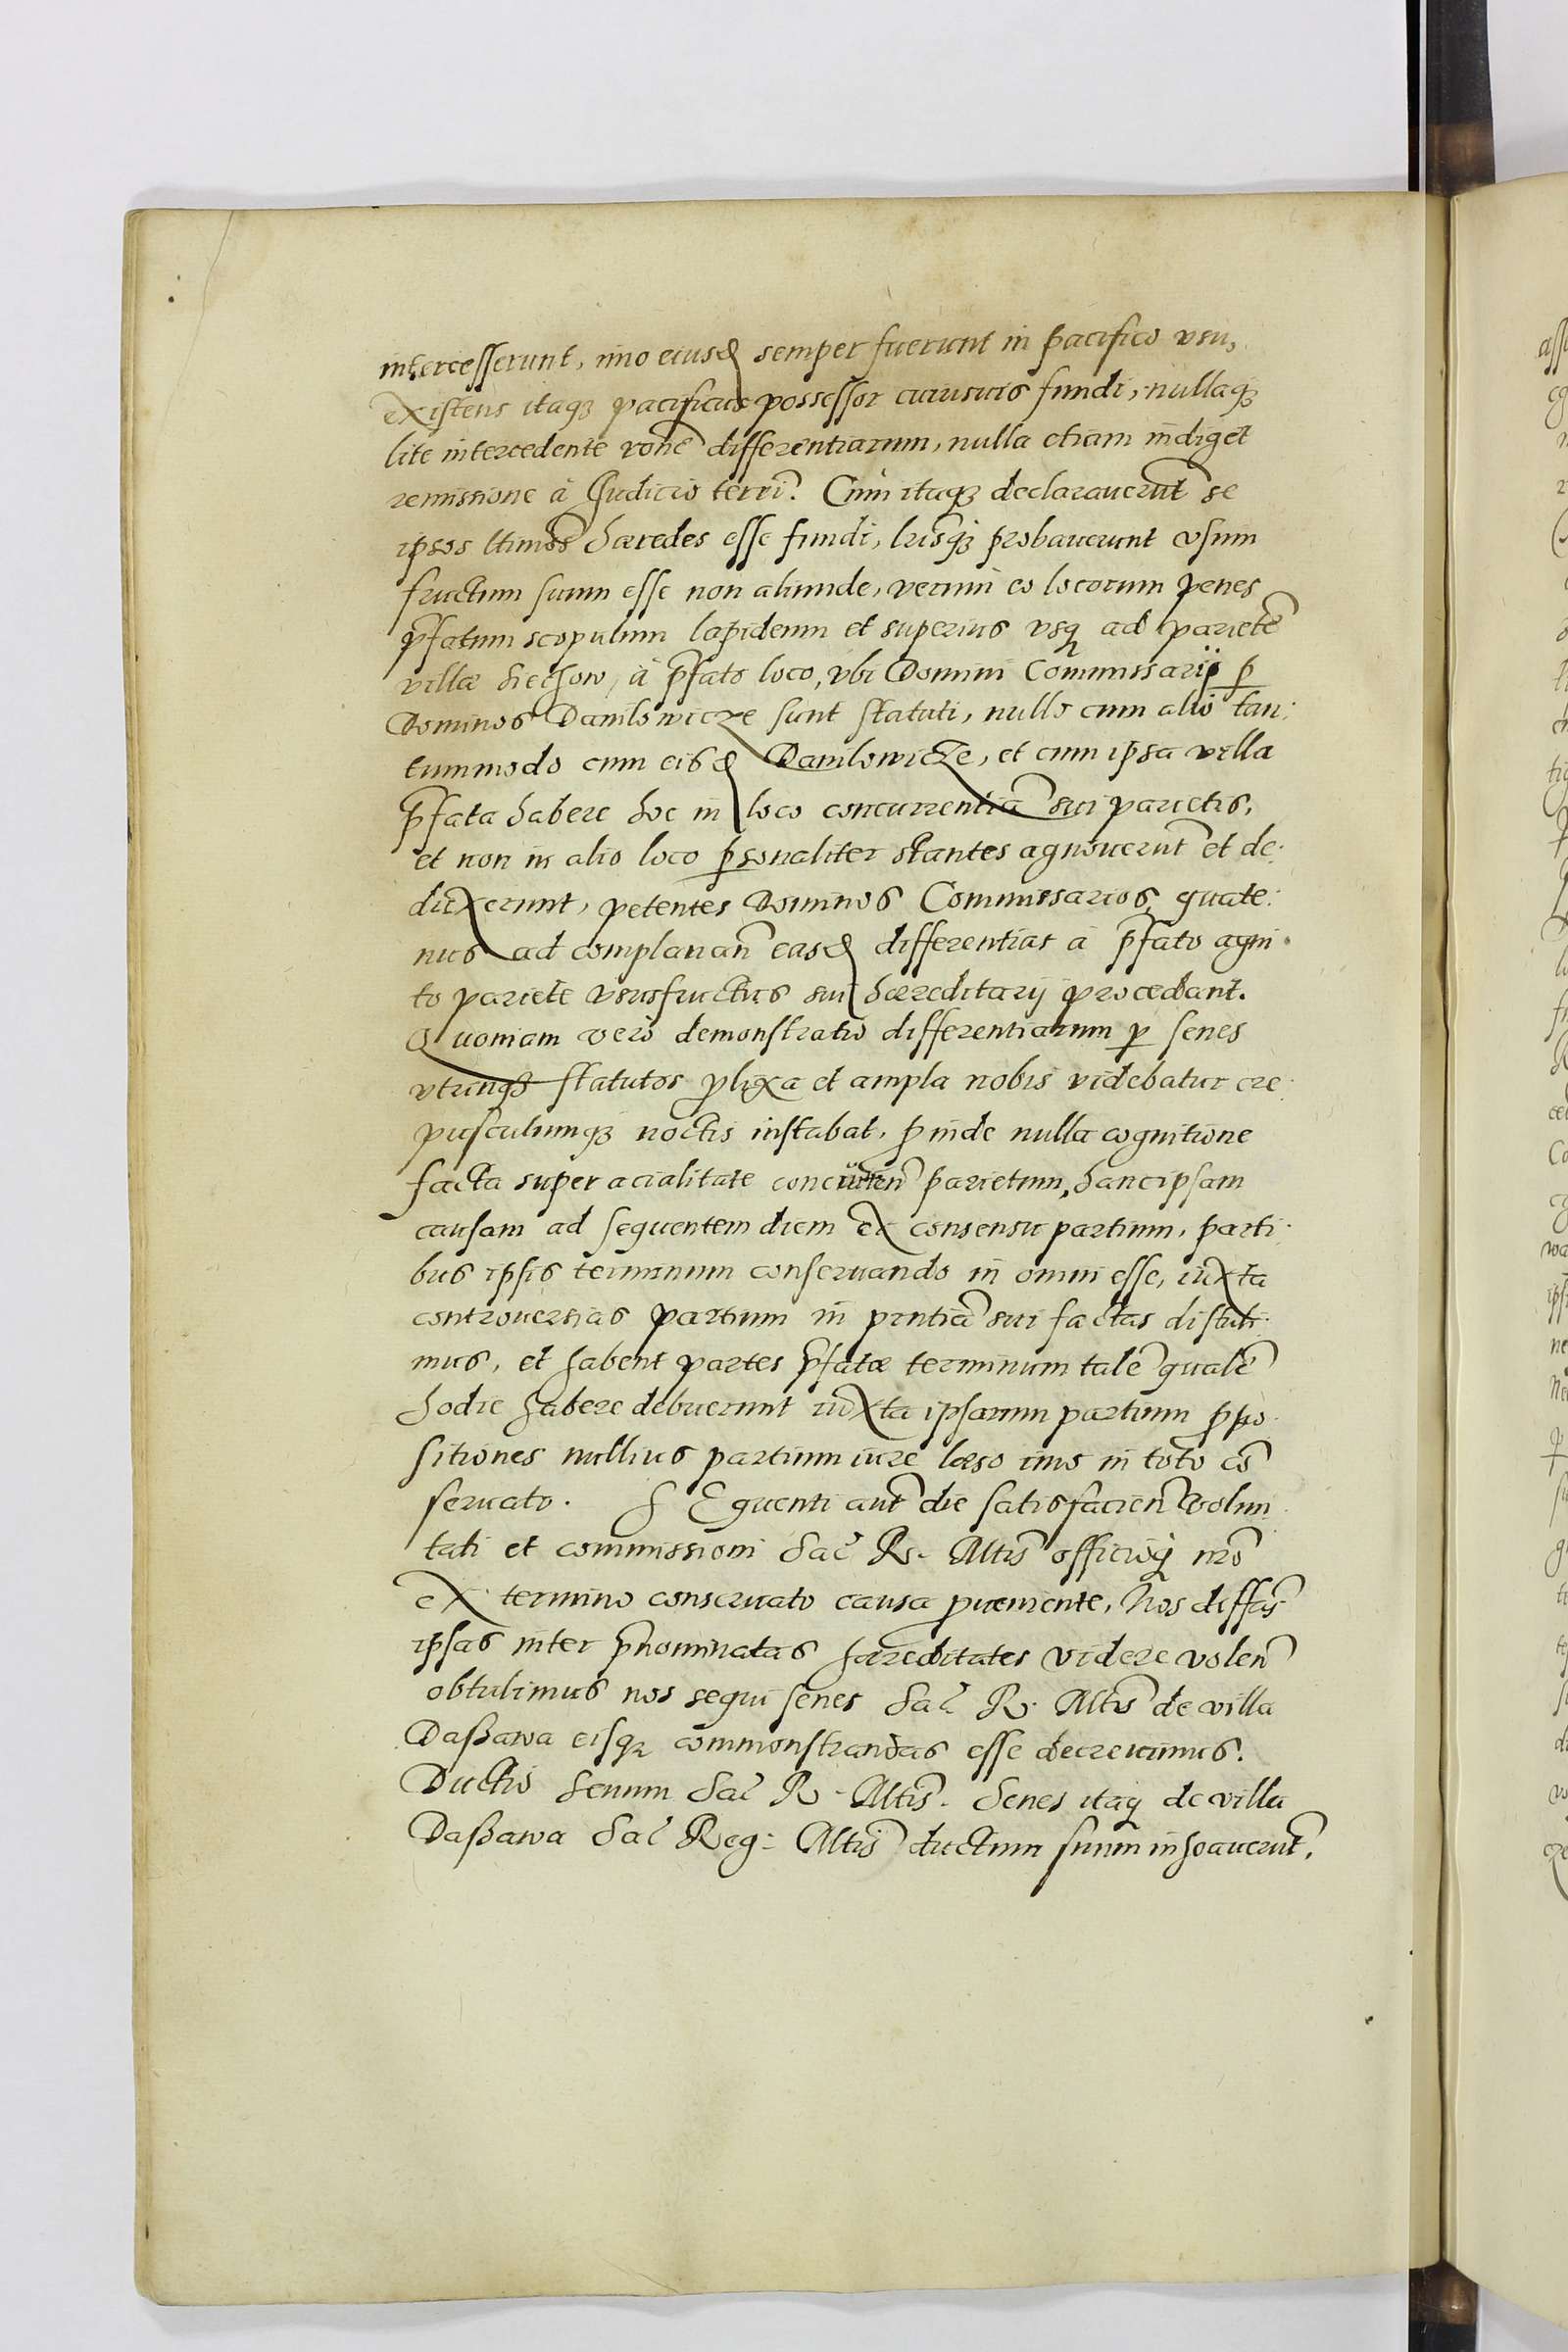 intercesserunt, imo eiusd semper fuerunt in pacifico vsu,
existens itaq3 pacificus possessor cuiusuis fundi, nullaq3
lite intercedente rone differentiarum, nulla etiam indiget
remissione à Judicio terri. Cum itaq3 declarauerut se
ipsos ltimos hæredes esse fundi, probauerunt vsum
fructum suum esse non aliunde, verum eo locorum penes
pfatum scopulum lapideum et superius vsq ad pariete
villæ à pfato loco, vbi Domini Commissarij p
Dominos Danilowicze sunt statuti, nullo cum alio tan:
tummodo cum eisd Danilowicze, et cum ipsa villa
pfata habere hoc in loco concurrentia sui parietis,
et non in alio loco psonaliter stantes agnouerut et de:
duxerunt, petentes Dominos Commissarios, quate:
nus ad complanan easd differentias à pfato agni:
to pariete vsusfructus sui hæreditarij procedant.
Quoniam vero demonstratio differentiarum p senes
vtrinq3 statutos plixa et ampla nobis videbatur cre:
pusculumq3 noctis instabat, pinde nulla cognitione
facta super acialitate concurren parietum, hanc ipsam
causam ad sequentem diem ex consensu partium, parti:
bus ipsis terminum conseruando in omni esse, iuxta
controuersias partium in pntia sui factas distuli:
mus, et habent partes pfatæ terminum tale quale
hodie habere debuerunt iuxta ipsarum partium ppo:
sitiones nullius partium iure læso imo in toto co
seruato. SEquenti aut die satisfacien volun
tati et commissioni Sac R. Altis officioq nro
ex termino conseruato causa pueniente, Nos diffas
ipsas inter pnominatas hæreditates videre volen
obtulimus nos sequi senes Sac R. Altis de villa
Daßawa eisq3 commonstrandas esse decreuimus.
Ductio Senum Sac R. Altis. Senes itaq de villa
Daßawa Sac Reg: Altis ductum suum inhoauerut.